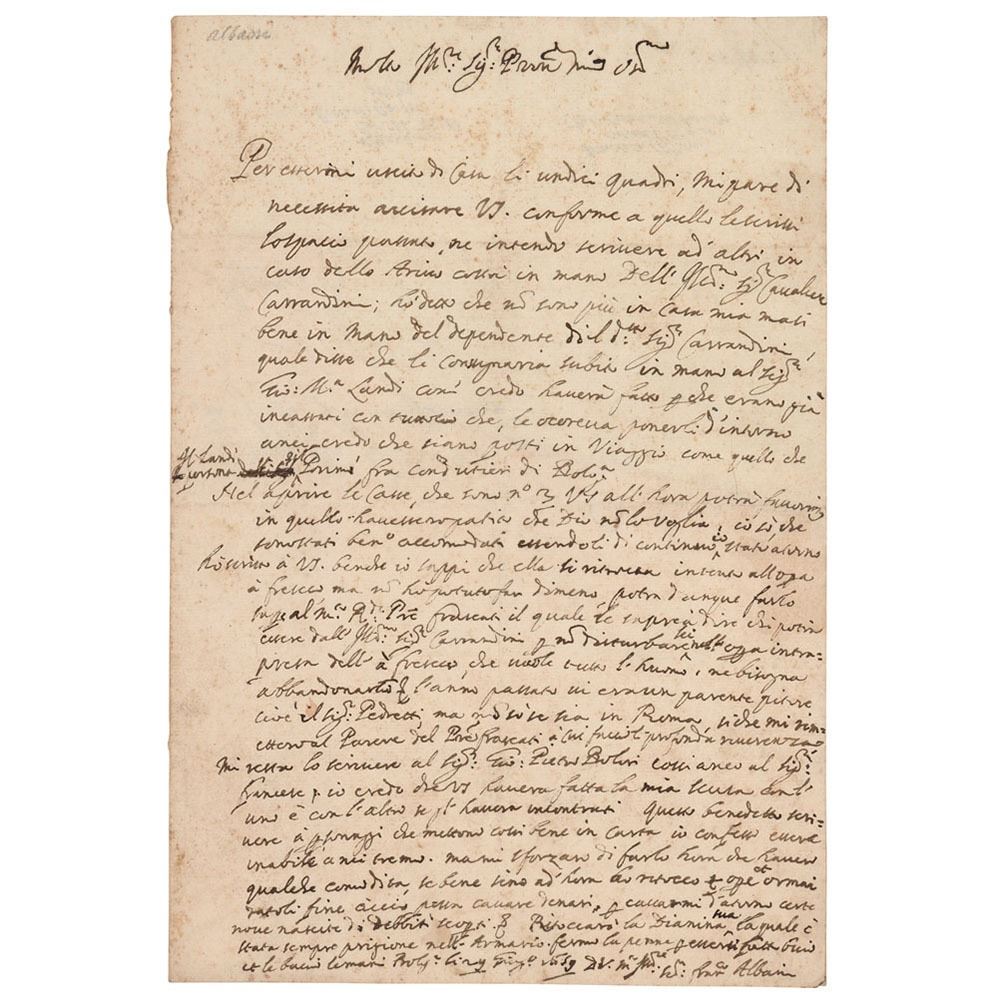 albani
Molto Ill.re Sig.r
Per essermi uscito di Casa li undici quadri, mi pare di
necessita avisare VS. conforme a quello le scrissi
lo spacio passato, ne intendo scrivere ad' altri in
caso dello Arivo costì in mano Dell' Ill.mo Sig.r Cavaliere
Carrandini; hò detto che nõ sono più in casa mia ma sì
bene in mano del dependente d.tto Sig.r Carrandini,
quale disse che li consignaria subito in mano al Sig.r
Gio: M.a Landi così credo haverà fatto che erano già
incassati con tuttociò che, le ocoreva ponerli d'intorno
anci credo che siano posti in Viaggio come quello che
Il Landi
fra condutieri di Bolog.a
Nel aprire le Casse, che sono n.o 3 VS all' hora potrà favorir
in quello havessero patito che Dio nõ lo voglia, io sò che
sono stati ben.o accomodati essendoli di continuo io stato atorno
Hò scritto à VS. benche io sappi che ella si ritrova intenta all opa
à fresco ma nõ hò potuto far dimeno potrà d'unque farlo
al m.to R.do Pre Frascati il quale le saprea dire che potrà
essere dall' Ill.mo Sig.r Carrandini p nõ disturbare opa intra=
presa dell' à fresco, che vuole tutto l' huomo, ne bisogna
abbandonarlo l'anno passato vi era un parente pitore
cioè il Sig.r Pedretti, ma nõ sò se sia in Roma, si che mi rim=
ettero al Parere del Pre Frascati à cui faccio profonda riverenza
Mi resta lo scrivere al Sig.r Gio: Pietro Bolori cossi anco al Sig.r
Francese p io credo che VS haverà fatta la mia scusa con l'
uno è con l'altro se li haverà incontrati Questo benedetto scri=
vere à psonaggi che mettono cossi bene in carta io confesso essere
inabile anci tremo. ma mi sforzarò di farlo hora che haverò
qualche comodità, se bene sino ad' hora ritocco ope et ormai
fine acciò possa cavare denari, p cavarmi d'atorno certe
nove nascite di debbiti Ritoccarò la Dianina sua, la quale è
stata sempre prigione nell' Armario. fermo la penna
et le bacio le mani Bolog.a 1659 D.V.S. m.to Ill.re fran.co Albani